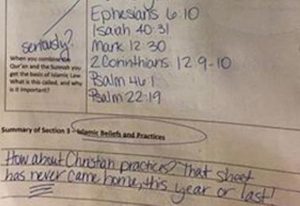 Ephesians 6:10
Isaiah 40:31
seriously?
Mark 12:30
2 Corinthians 12:9-10
When you combine the
Qur'an and the Sunnah you
get the basis of Islamic Law.
What is this called, and why
is it important?
Psalm 46:1
Psalm 22:19
Summary of Section 3 - Islamic Beliefs and Practices
How about Christian practices? That sheet
has never came home, this year or last!